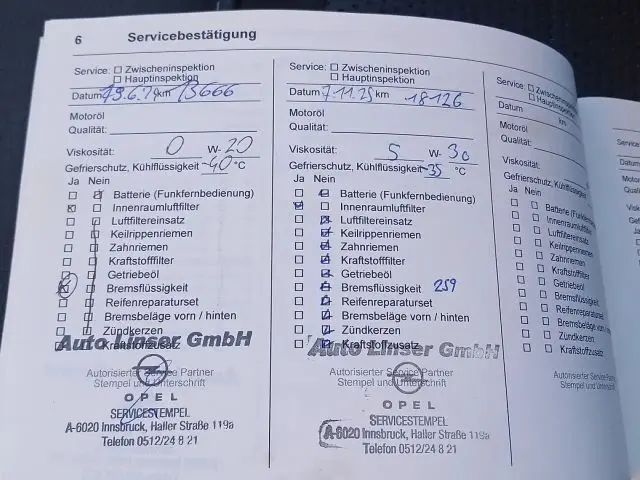 6 Servicebestätigung
Service: Zwischeninspektion
Hauptinspektion
Datum km 13666
Motoröl
Qualität:
Viskosität: 0 W- 20
Gefrierschutz, Kühlflüssigkeit -40 °C
Ja Nein
Batterie (Funkfernbedienung)
Innenraumluftfilter
Luftfiltereinsatz
Keilrippenriemen
Zahnriemen
Kraftstofffilter
Getriebeöl
Bremsflüssigkeit
Reifenreparaturset
Bremsbeläge vorn / hinten
Zündkerzen
Kraftstoffzusatz
Auto Linser GmbH
Autorisierter Service Partner
Stempel und Unterschrift
OPEL
SERVICESTEMPEL
A-6020 Innsbruck, Haller Straße 119a
Telefon 0512/24 8 21
Service: Zwischeninspektion
Hauptinspektion
Datum 7.11.25 km 18126
Motoröl
Qualität:
Viskosität: 5 W- 30
Gefrierschutz, Kühlflüssigkeit -35 °C
Ja Nein
Batterie (Funkfernbedienung)
Innenraumluftfilter
Luftfiltereinsatz
Keilrippenriemen
Zahnriemen
Kraftstofffilter
Getriebeöl
Bremsflüssigkeit 259
Reifenreparaturset
Bremsbeläge vorn / hinten
Zündkerzen
Kraftstoffzusatz
Auto Linser GmbH
Autorisierter Service Partner
Stempel und Unterschrift
OPEL
SERVICESTEMPEL
A-6020 Innsbruck, Haller Straße 119a
Telefon 0512/24 8 21
Service: Zwischeninspektion
Hauptinspektion
Datum km
Motoröl
Qualität:
Viskosität:
Gefrierschutz, Kühlflüssigkeit
Ja Nein
Batterie (Funkfernbedienung)
Innenraumluftfilter
Luftfiltereinsatz
Keilrippenriemen
Zahnriemen
Kraftstofffilter
Getriebeöl
Bremsflüssigkeit
Reifenreparaturset
Bremsbeläge vorn
Zündkerzen
Kraftstoffzusatz
Autorisierter
Stempel und